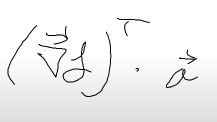 (∇⃗f)ᵀ · a⃗